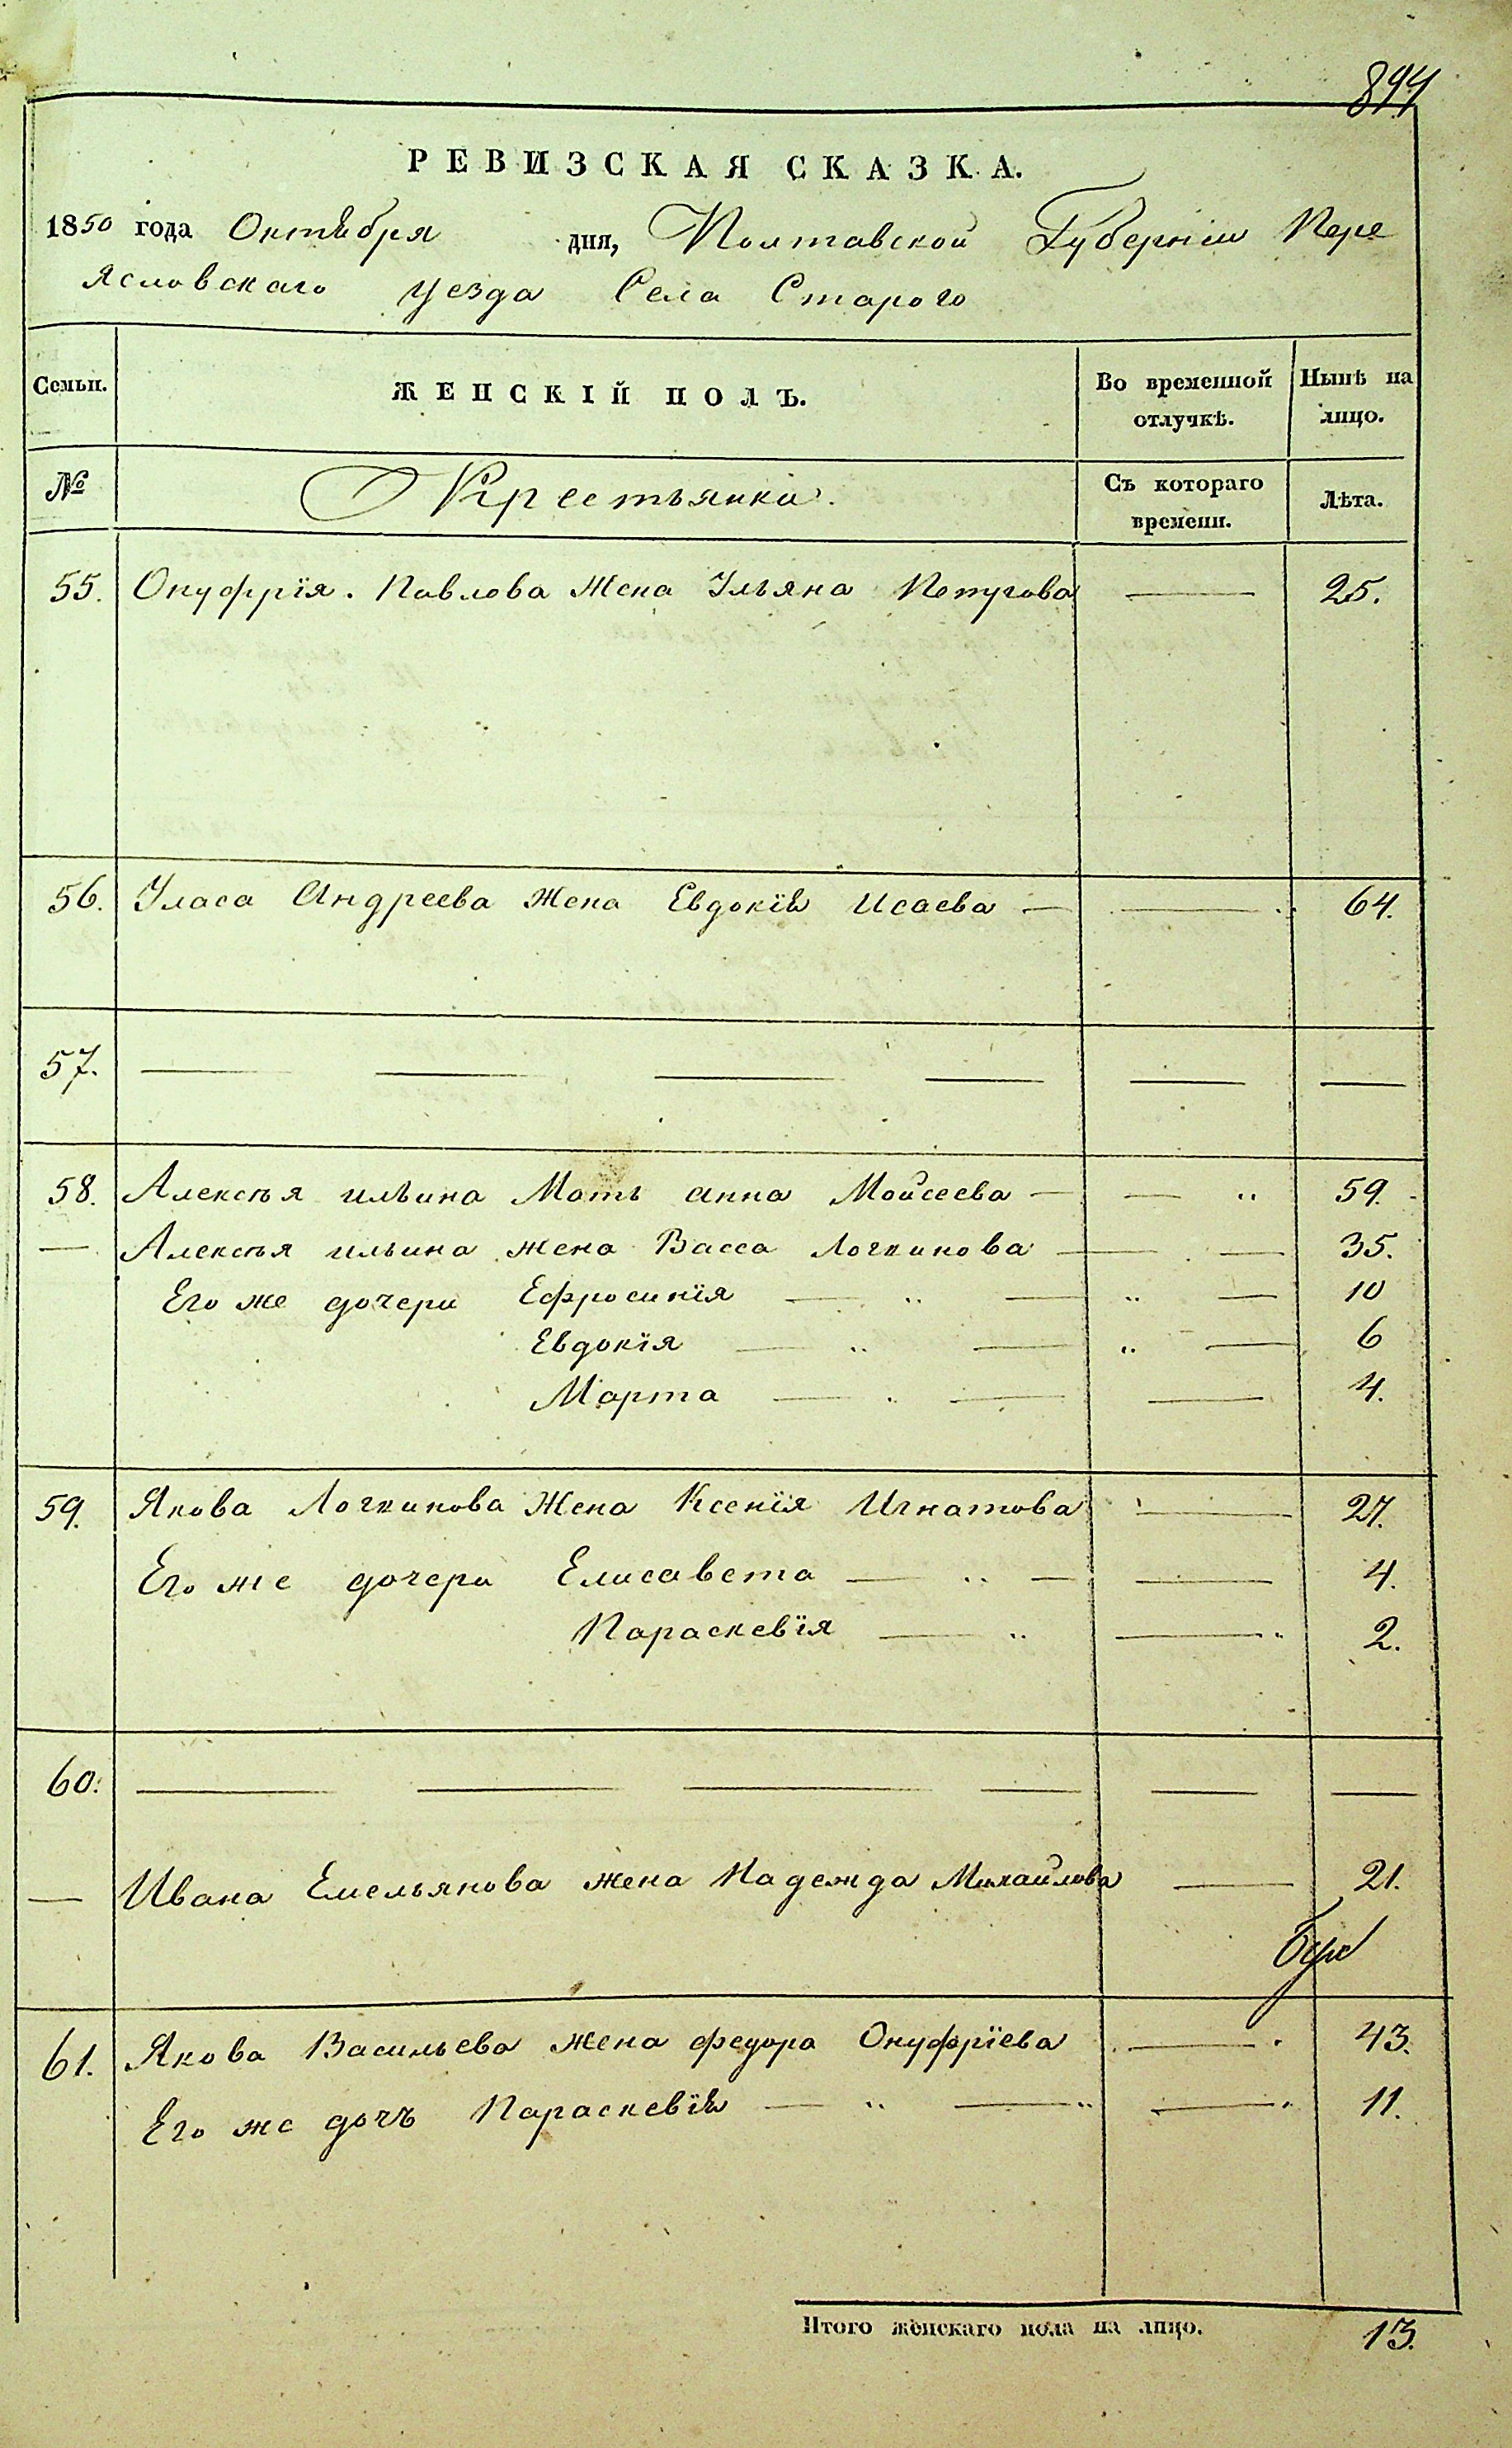 894
РЕВИЗСКАЯ СКАЗКА.
1850 года Октября дня, Полтавской Губерніи Пере
яславскаго уезда Села Старого
Семьи. ЖЕНСКІЙ ПОЛЪ. Во временной отлучкѣ. Нынѣ на лицо.
№ Крестьянки. Съ котораго времени. Лѣта.
55. Онуфрія. Павлова жена Ульяна — 25.
56. Уласа Андреева жена Евдокія Исаева — — 64.
57. — — — — — —
58. Алексѣя ильина Мать анна Мойсеева — — " 59.
— Алексѣя ильина жена Васса Логвинова — — 35.
Его же дочери Ефросинія — " — " — 10
Евдокія — " — " — 6
Марта — . — — 4.
59. Якова Логвинова жена Ксенія Игнатова — 27.
Его же дочери Елисавета — " — — 4.
Параскевія — " — " 2.
60. — — — — — —
— Ивана Емельянова жена Надежда Михайлова — 21.
61. Якова Васильева жена федора Онуфріева — 43.
Его же дочъ Параскевія — " — " — " 11.
Итого женскаго пола на лицо. 13.